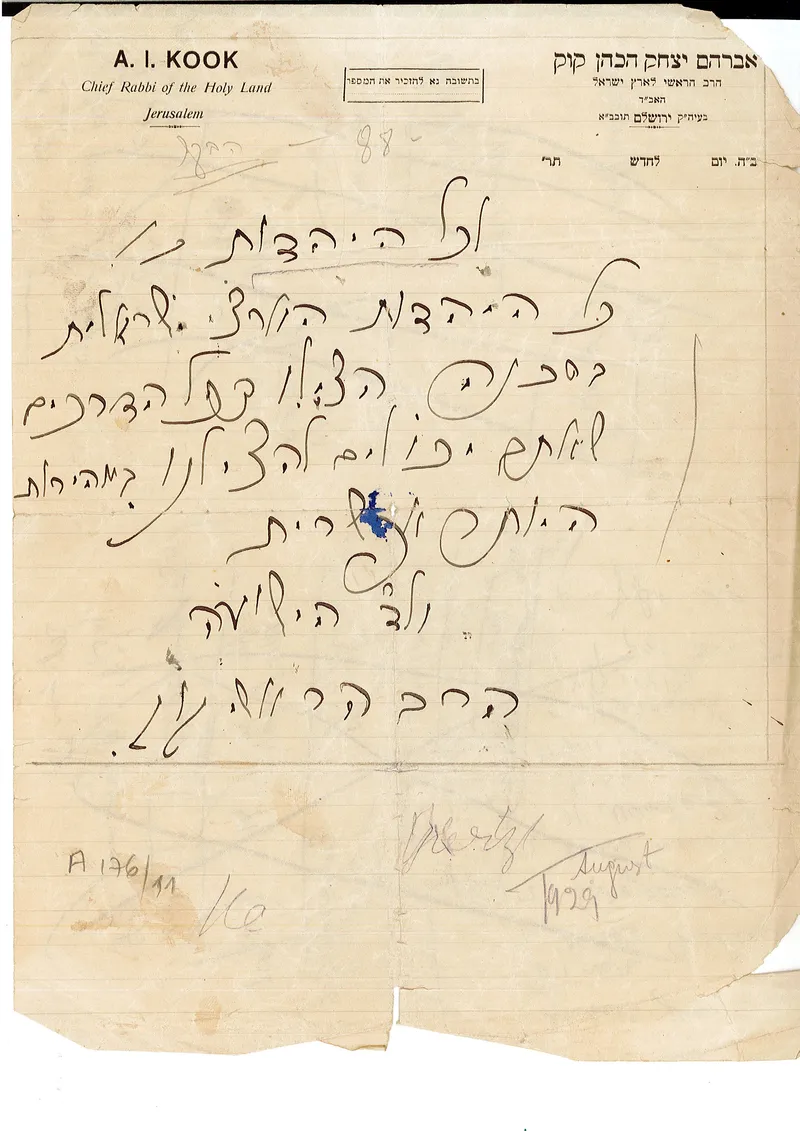 A. I. KOOK
Chief Rabbi of the Holy Land
Jerusalem
בתשובה נא להזכיר את המספר
אברהם יצחק הכהן קוק
הרב הראשי לארץ ישראל
האב״ד
בעיה״ק ירושלם תובב״א
ב״ה. יום לחדש תר״
- 88 -
לכל היהדות
כל היהדות הארצי ישראלית
בסכנה הצילו בכל הדרכים
שאתם יכולים להצילנו במהירות
היותר אפשרית
ולד׳ הישועה
הרב הראשי קוק
A 176/11
August
1929